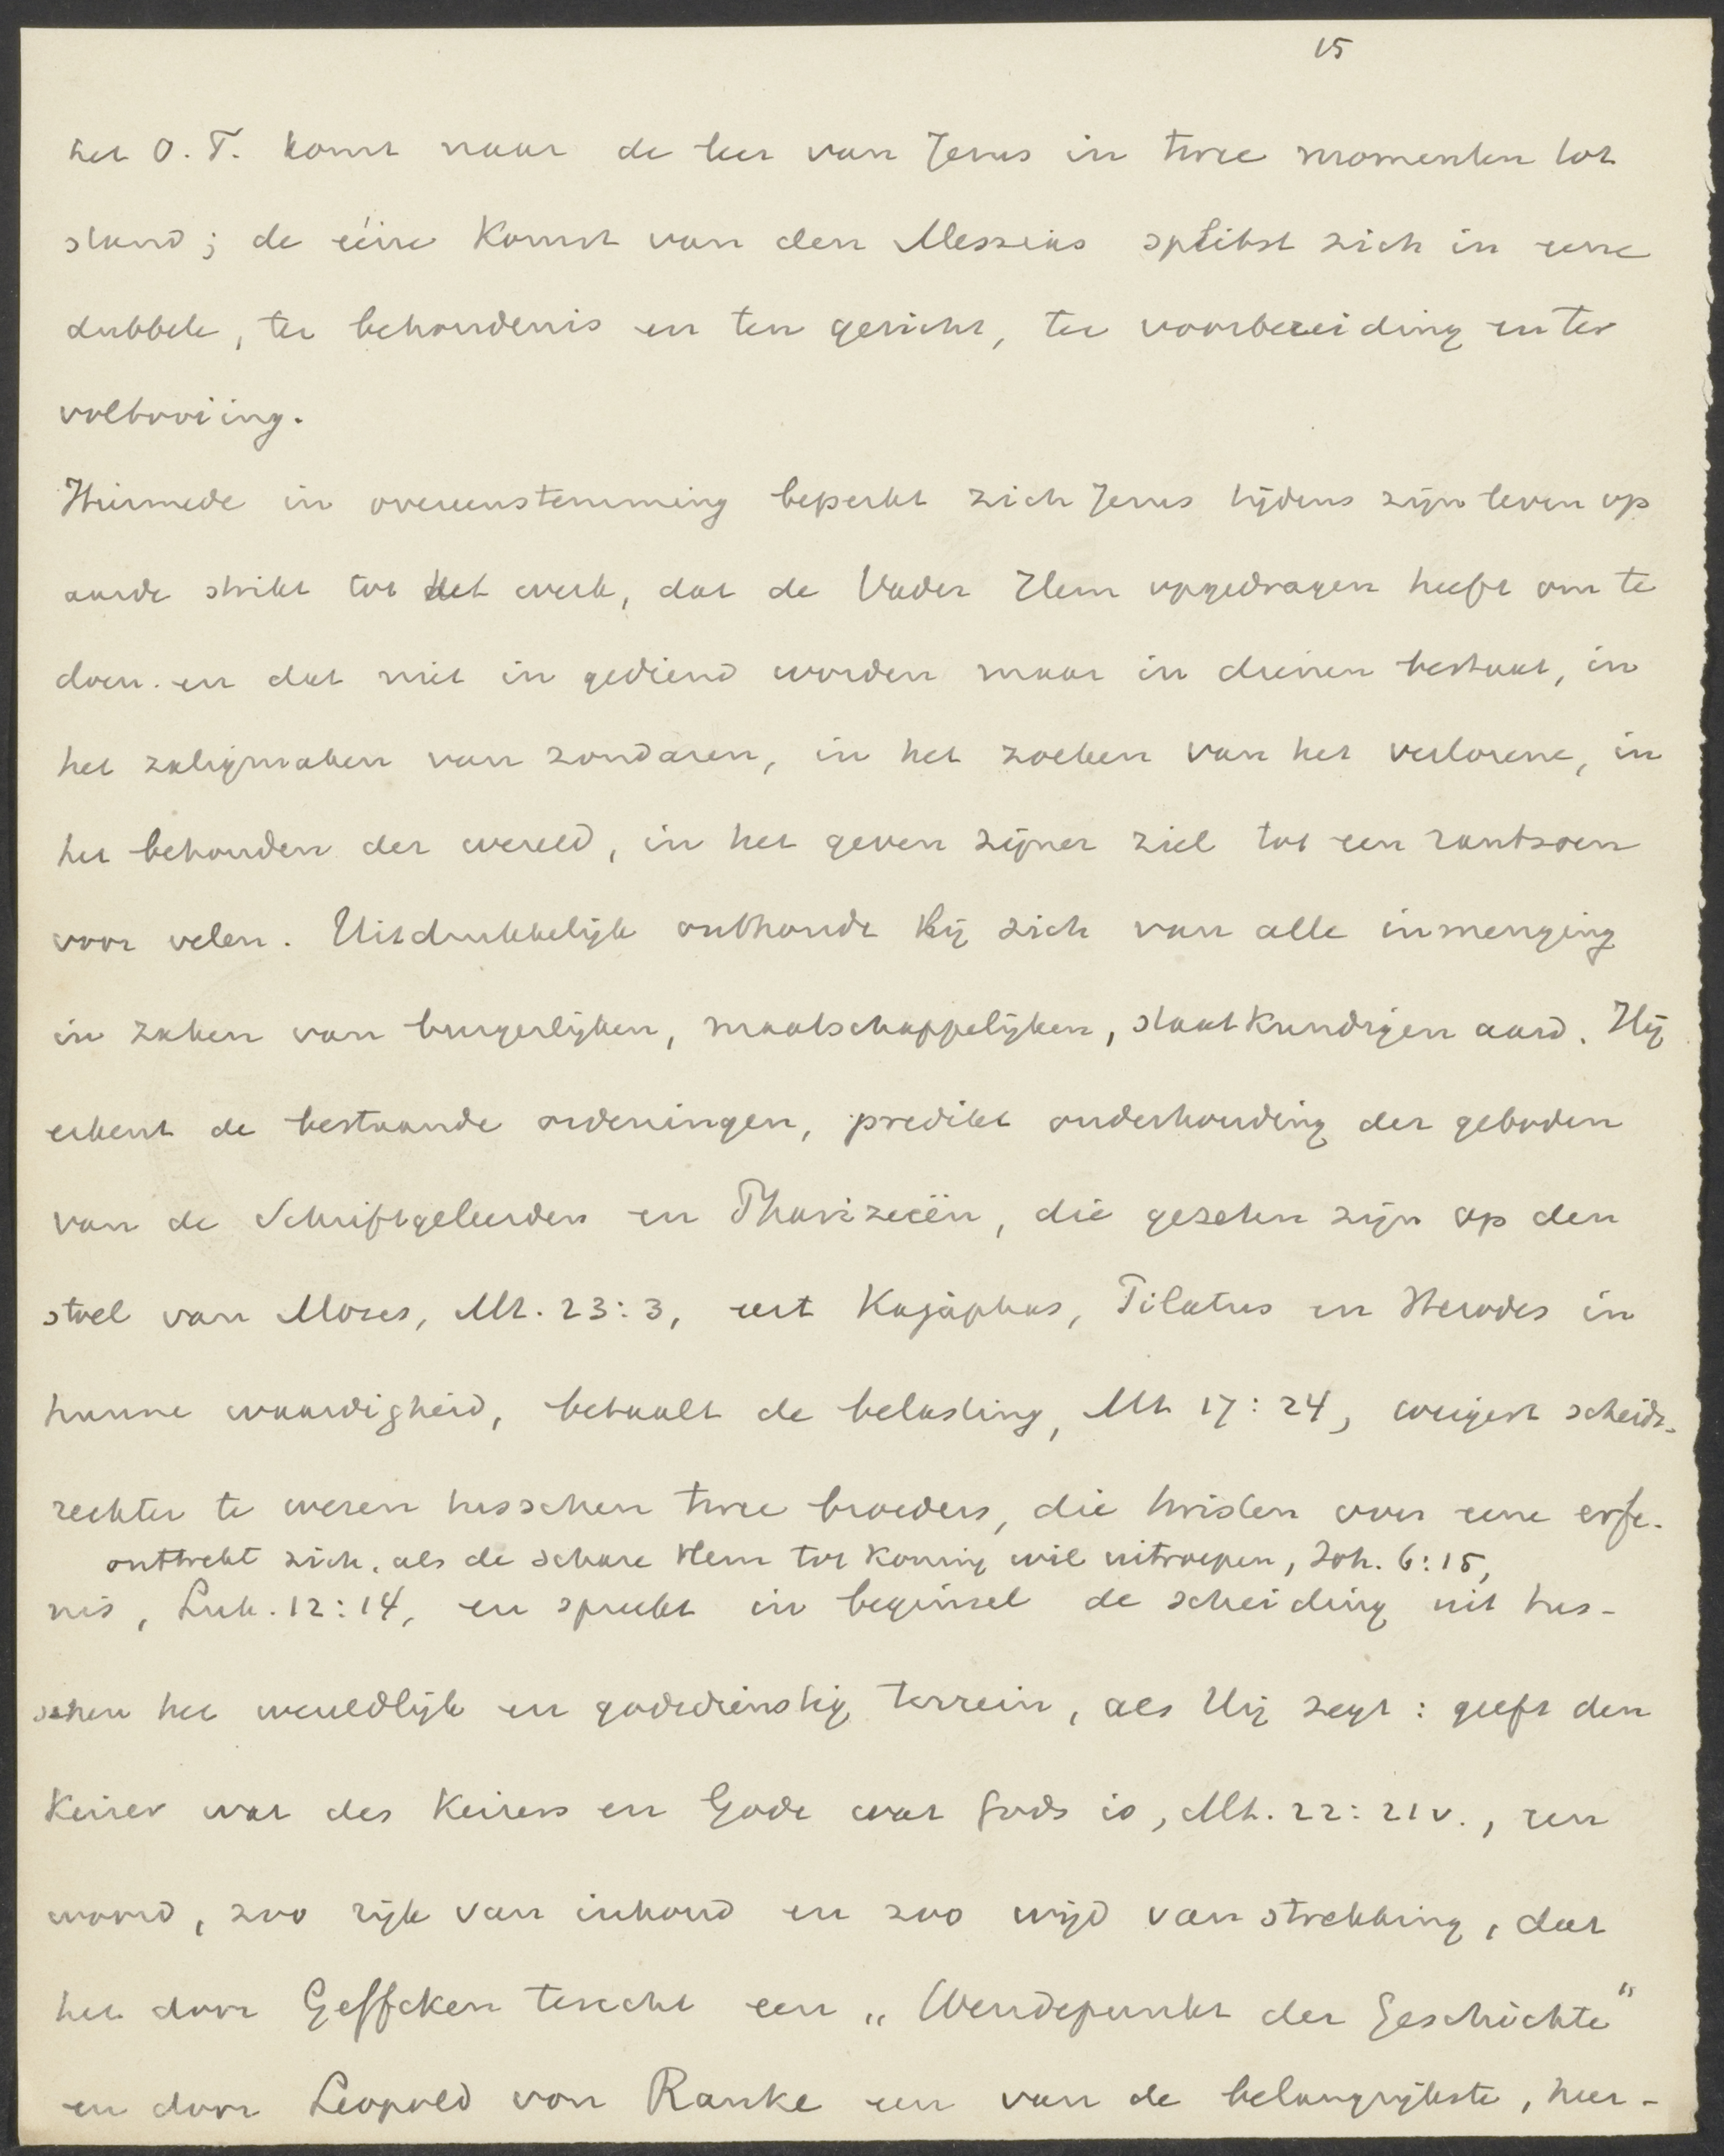 15
het O. T. komt naar de leer van Jezus in twee momenten tot
stand; de ééne komst van den Messias splitst zich in eene
dubbele, ter behoudenis en ten gericht, ter voorbereiding en ter
voltooiing.
Hiermede in overeenstemming beperkt zich Jezus tijdens zijn leven op
aarde strikt tot het werk, dat de Vader Hem opgedragen heeft om te
doen en dat niet in gediend worden maar in dienen bestaat, in
het zaligmaken van zondaren, in het zoeken van het verlorene, in
het behouden der wereld, in het geven zijner ziel tot een rantsoen
voor velen. Uitdrukkelijk onthoudt Hij zich van alle inmenging
in zaken van burgerlijken, maatschappelijken, staatkundigen aard. Hij
erkent de bestaande ordeningen, predikt onderhouding der geboden
van de Schriftgeleerden en Pharizeeën, die gezeten zijn op den
stoel van Mozes, Mt. 23:3, eert Kajaphas, Pilatus en Herodes in
hunne waardigheid, betaalt de belasting, Mt. 17:24, weigert scheids-
rechter te wezen tusschen twee broeders, die twisten over eene erfe-
onttrekt zich, als de schare Hem tot Koning wil uitroepen, Joh. 6:15,
nis, Luk. 12:14, en spreekt in beginsel de scheiding uit tus-
schen het wereldlijk en godsdienstig terrein, als Hij zegt: geeft den
Keizer wat des Keizers en Gode wat Gods is, Mt. 22:21v., een
woord, zoo rijk van inhoud en zoo wijd van strekking, dat
het door Geffcken terecht een „Wendepunkt der Geschichte"
en door Leopold von Ranke een van de belangrijkste, heer-